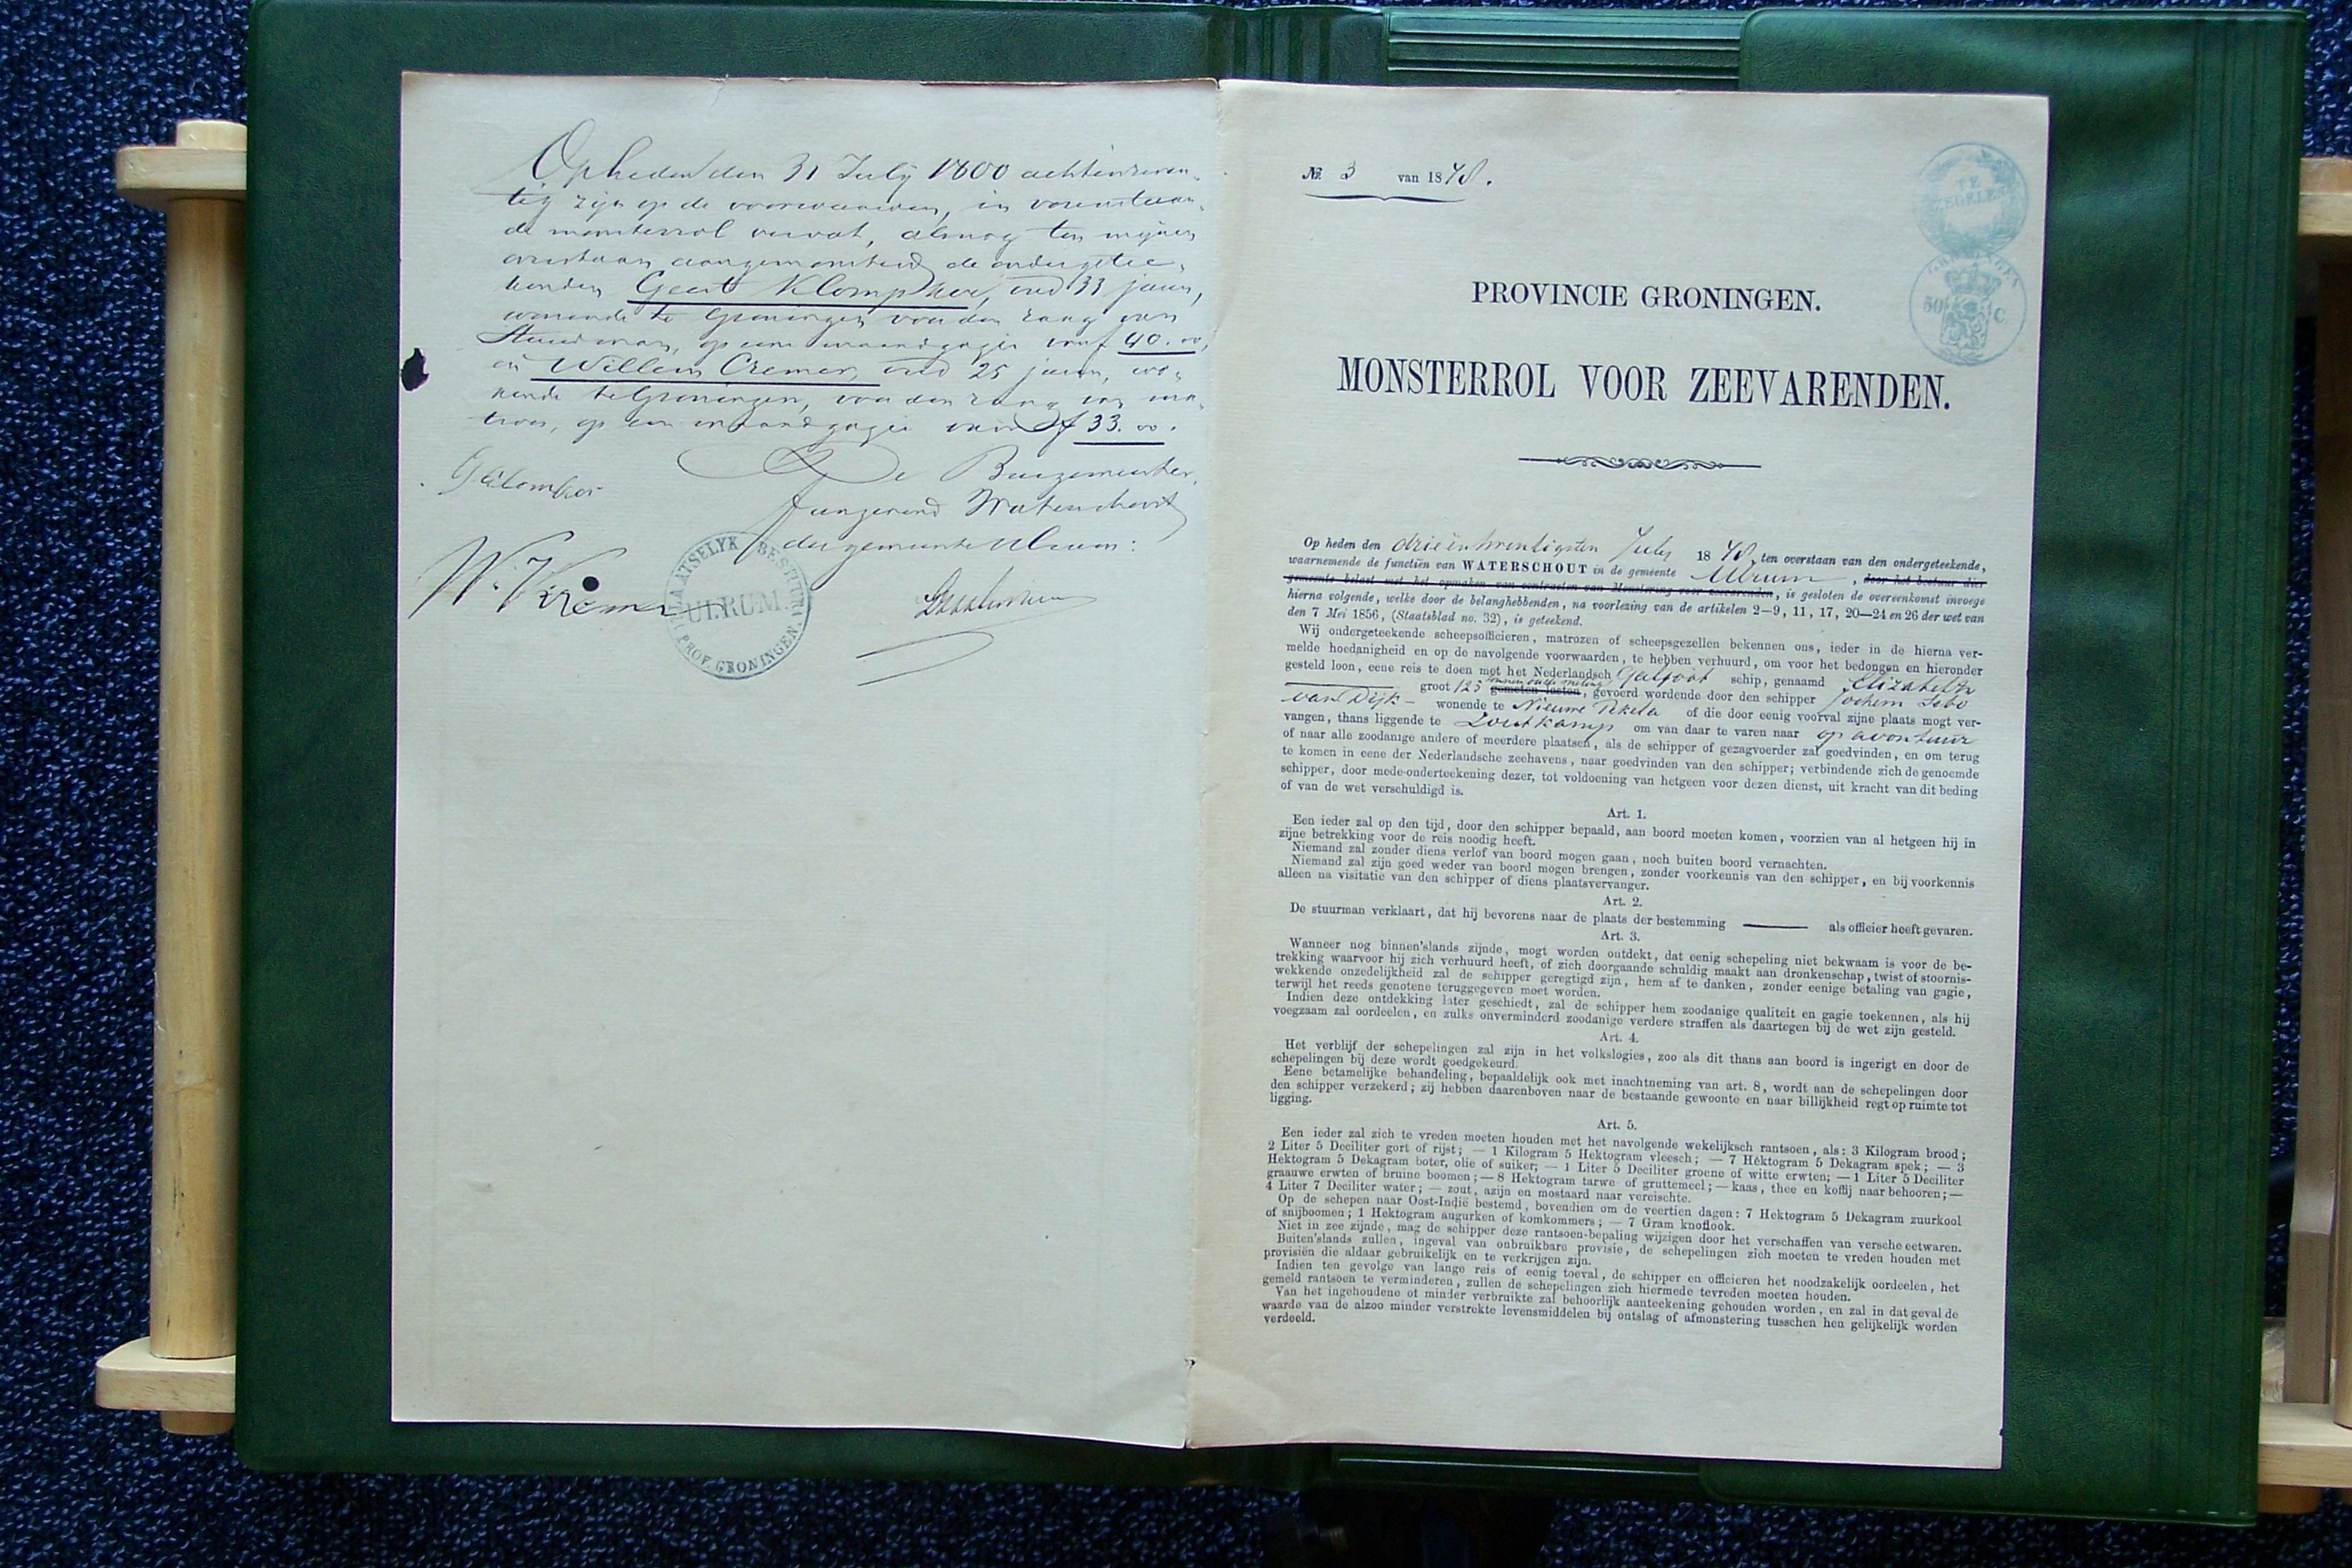 Op heden den 31 July 1800 achtenzeven-
tig zijn op de voorwaarden, in vorenstaan-
de monsterrol vervat, alsnog ten mijnen
overstaan aangemonsterd de ondergetee-
kenden Geert Klompker, oud 33 jaren,
wonende te Groningen voor den rang van
Stuurman, op eene maandgagie van f 40.00,
en Willem Cremer, oud 25 jaren, wo-
nende te Groningen, voor den rang van ma-
troos, op een maandgagie van f 33.00.
De Burgemeester,
fungerend Waterschout
der gemeente Ulrum:
G Klompker
W. Kremer
PLAATSELYK BESTUUR
ULRUM.
PROV. GRONINGEN.
No. 3 van 1878.
TE ZEGELEN
GRONINGEN
50 C
PROVINCIE GRONINGEN.
MONSTERROL VOOR ZEEVARENDEN.
Op heden den drieëntwentigsten July 1878, ten overstaan van den ondergeteekende,
waarnemende de functiën van WATERSCHOUT in de gemeente Ulrum, door het bestuur dier
gemeente belast met het opmaken van contracten van Monstering voor zeevarenden, is gesloten de overeenkomst invoege
hierna volgende, welke door de belanghebbenden, na voorlezing van de artikelen 2—9, 11, 17, 20—24 en 26 der wet van
den 7 Mei 1856, (Staatsblad no. 32), is geteekend.
Wij ondergeteekende scheepsofficieren, matrozen of scheepsgezellen bekennen ons, ieder in de hierna ver-
melde hoedanigheid en op de navolgende voorwaarden, te hebben verhuurd, om voor het bedongen en hieronder
gesteld loon, eene reis te doen met het Nederlandsch Galjoot schip, genaamd Elizabeth
groot 125 tonnen oude meting gemeten lasten, gevoerd wordende door den schipper Jochem Sebo
van Dijk - wonende te Nieuwe Pekela of die door eenig voorval zijne plaats mogt ver-
vangen, thans liggende te Zoutkamp om van daar te varen naar op avontuur
of naar alle zoodanige andere of meerdere plaatsen, als de schipper of gezagvoerder zal goedvinden, en om terug
te komen in eene der Nederlandsche zeehavens, naar goedvinden van den schipper; verbindende zich de genoemde
schipper, door mede-onderteekening dezer, tot voldoening van hetgeen voor dezen dienst, uit kracht van dit beding
of van de wet verschuldigd is.
Art. 1.
Een ieder zal op den tijd, door den schipper bepaald, aan boord moeten komen, voorzien van al hetgeen hij in
zijne betrekking voor de reis noodig heeft.
Niemand zal zonder diens verlof van boord mogen gaan, noch buiten boord vernachten.
Niemand zal zijn goed weder van boord mogen brengen, zonder voorkennis van den schipper, en bij voorkennis
alleen na visitatie van den schipper of diens plaatsvervanger.
Art. 2.
De stuurman verklaart, dat hij bevorens naar de plaats der bestemming ——— als officier heeft gevaren.
Art. 3.
Wanneer nog binnen'slands zijnde, mogt worden ontdekt, dat eenig schepeling niet bekwaam is voor de be-
trekking waarvoor hij zich verhuurd heeft, of zich doorgaande schuldig maakt aan dronkenschap, twist of stoornis-
wekkende onzedelijkheid zal de schipper geregtigd zijn, hem af te danken, zonder eenige betaling van gagie,
terwijl het reeds genotene teruggegeven moet worden.
Indien deze ontdekking later geschiedt, zal de schipper hem zoodanige qualiteit en gagie toekennen, als hij
voegzaam zal oordeelen, en zulks onverminderd zoodanige verdere straffen als daartegen bij de wet zijn gesteld.
Art. 4.
Het verblijf der schepelingen zal zijn in het volkslogies, zoo als dit thans aan boord is ingerigt en door de
schepelingen bij deze wordt goedgekeurd.
Eene betamelijke behandeling, bepaaldelijk ook met inachtneming van art. 8, wordt aan de schepelingen door
den schipper verzekerd; zij hebben daarenboven naar de bestaande gewoonte en naar billijkheid regt op ruimte tot
ligging.
Art. 5.
Een ieder zal zich te vreden moeten houden met het navolgende wekelijksch rantsoen, als: 3 Kilogram brood;
2 Liter 5 Deciliter gort of rijst; — 1 Kilogram 5 Hektogram vleesch; — 7 Hektogram 5 Dekagram spek; — 3
Hektogram 5 Dekagram boter, olie of suiker; — 1 Liter 5 Deciliter groene of witte erwten; — 1 Liter 5 Deciliter
graauwe erwten of bruine boomen; — 8 Hektogram tarwe- of gruttemeel; — kaas, thee en koffij naar behooren; —
4 Liter 7 Deciliter water; — zout, azijn en mostaard naar vereischte.
Op de schepen naar Oost-Indië bestemd, bovendien om de veertien dagen: 7 Hektogram 5 Dekagram zuurkool
of snijboomen; 1 Hektogram augurken of komkommers; — 7 Gram knoflook.
Niet in zee zijnde, mag de schipper deze rantsoen-bepaling wijzigen door het verschaffen van versche eetwaren.
Buiten'slands zullen, ingeval van onbruikbare provisie, de schepelingen zich moeten te vreden houden met
provisiën die aldaar gebruikelijk en te verkrijgen zijn.
Indien ten gevolge van lange reis of eenig toeval, de schipper en officieren het noodzakelijk oordeelen, het
gemeld rantsoen te verminderen, zullen de schepelingen zich hiermede tevreden moeten houden.
Van het ingehoudene of minder verbruikte zal behoorlijk aanteekening gehouden worden, en zal in dat geval de
waarde van de alzoo minder verstrekte levensmiddelen bij ontslag of afmonstering tusschen hen gelijkelijk worden
verdeeld.